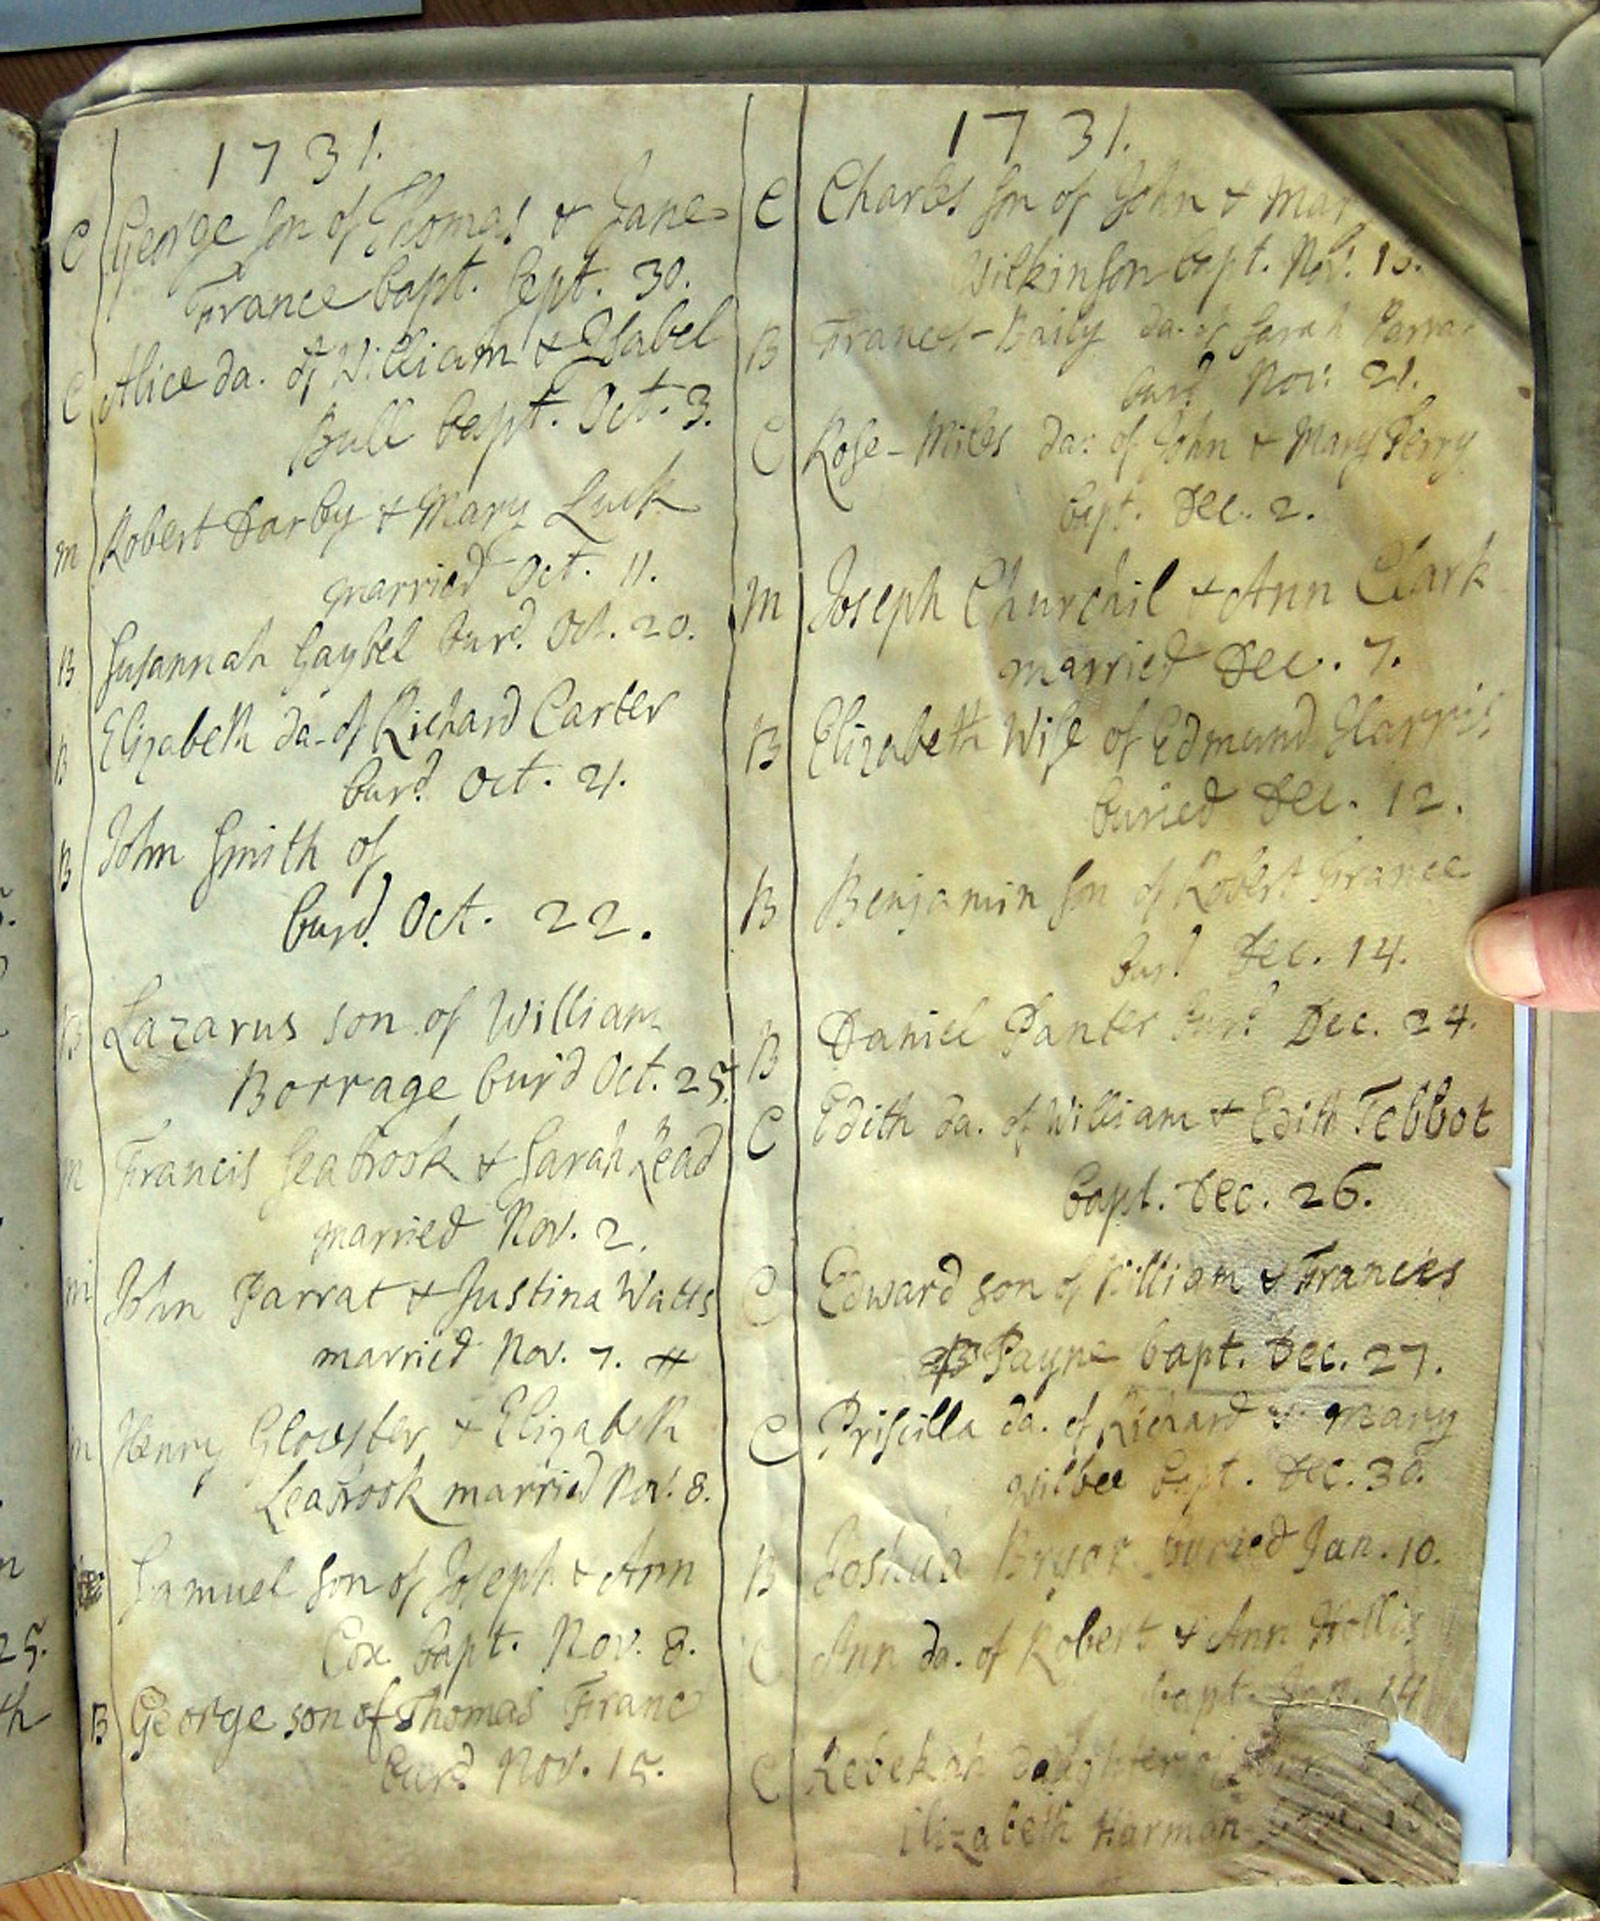 1731.
C George son of Thomas & Jane
France bapt. Sept. 30.
C Alice da. of William & Isabel
Bull bapt. Oct. 3.
M Robert Darby & Mary Luck
married Oct. 11.
B Susannah Gaybel burd. Oct. 20.
B Elizabeth da. of Richard Carter
burd. Oct. 21.
B John Smith of
burd. Oct. 22.
B Lazarus son of William
Borrage bur'd Oct. 25.
m Francis Seabrook & Sarah Read
married Nov. 2.
m John Parrat & Justina Watts
married Nov. 7. #
m Henry Glouster & Elizabeth
Seabrook married Nov. 8.
Samuel son of Joseph & Ann
Cox bapt. Nov. 8.
B George son of Thomas Franc
burd. Nov. 15.
1731.
C Charles son of John & Mar
Wilkinson bapt. Nov.
B Frances-Baily da. of Sarah
burd Nov: 21.
C Rose-Miles da: of John & Mary Perry
bapt. Dec. 2.
M Joseph Churchil & Ann Clark
married Dec. 7.
B Elizabeth Wife of Edmund Harris
buried Dec. 12.
B Benjamin son of Robert France
burd Dec. 14.
B Daniel Panter burd Dec. 24.
C Edith da. of William & Edith Tebbot
bapt. Dec. 26.
C Edward son of William & Frances
Payne bapt. Dec. 27.
C Priscilla da. of Richard & Mary
Wilbee bapt. Dec. 30.
B Joshua Bryar buried Jan. 10.
C Ann da. of Robert & Ann Hollis
bapt. Jan. 14
C Rebekah daughter of
Elizabeth Harman